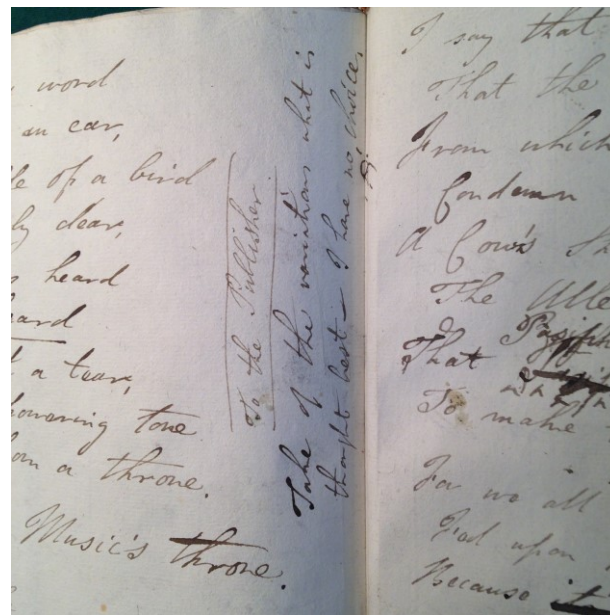 word
an ear,
of a bird
dear,
heard
heard
a tear,
hovering tone
a throne.
Music's throne.
To the Publisher
Take of the variations what is
thought best — I have no choice.
I say that
That the
From which
Condemn
A Cow's
The
That
To make
For we all
upon
Because it